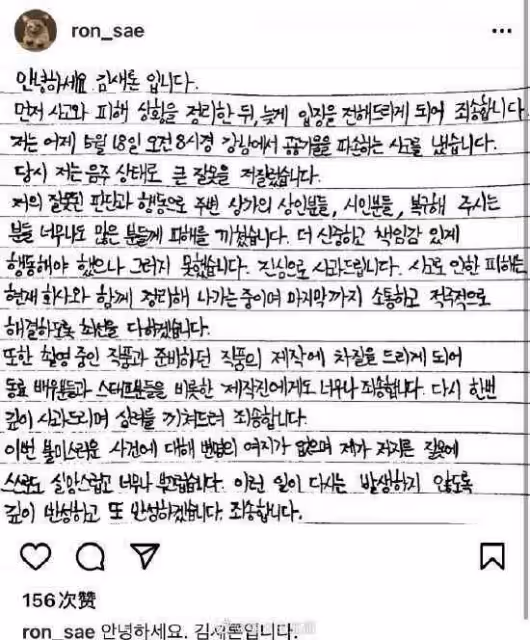 ron_sae
안녕하세요 김새론 입니다.
먼저 사고와 피해 상황을 정리한 뒤, 늦게 입장을 전해드리게 되어 죄송합니다.
저는 어제 5월 18일 오전 8시경 강남에서 공공기물을 파손하는 사고를 냈습니다.
당시 저는 음주 상태로 큰 잘못을 저질렀습니다.
저의 잘못된 판단과 행동으로 주변 상가의 상인분들, 시민분들, 복구해 주시는
분들 너무나도 많은 분들께 피해를 끼쳤습니다. 더 신중하고 책임감 있게
행동해야 했으나 그러지 못했습니다. 진심으로 사과드립니다. 사고로 인한 피해는
현재 회사와 함께 정리해 나가는 중이며 마지막까지 소통하고 적극적으로
해결하도록 최선을 다하겠습니다.
또한 촬영 중인 작품과 준비하던 작품의 제작에 차질을 드리게 되어
동료 배우분들과 스태프분들을 비롯한 제작진에게도 너무나 죄송합니다. 다시 한번
깊이 사과드리며 심려를 끼쳐드려 죄송합니다.
이번 불미스러운 사건에 대해 변명의 여지가 없으며 제가 저지른 잘못에
스스로도 실망스럽고 너무나 부끄럽습니다. 이런 일이 다시는 발생하지 않도록
깊이 반성하고 또 반성하겠습니다. 죄송합니다.
156次赞
ron_sae 안녕하세요. 김새론입니다.